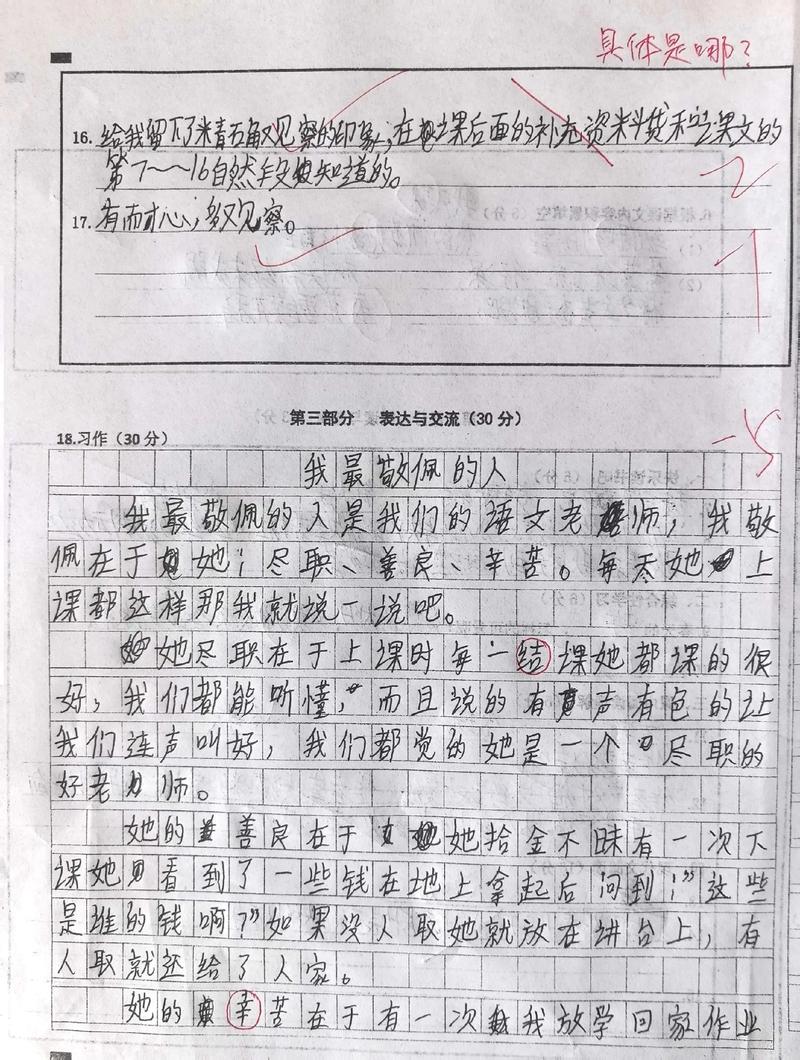 具体是哪？
16. 给我留下了精石角又见察的印象,在课后面的补充资料货和空课文的
第7～16自然年段知道的。
-2
17. 有耐心,多又见察。
-1
第三部分 表达与交流（30分）
18.习作（30分）
-5
我最敬佩的人
我最敬佩的人是我们的语文老师，我敬
佩在于她；尽职、善良、辛苦。每天她上
课都这样那我就说一说吧。
她尽职在于上课时每一结课她都课的很
好，我们都能听懂，而且说的有声有色的让
我们连声叫好，我们都觉的她是一个尽职的
好老师。
她的善良在于她拾金不昧有一次下
课她看到了一些钱在地上拿起后问到！"这些
是谁的钱啊？"如果没人取她就放在讲台上，有
人取就还给了人家。
她的辛苦在于有一次我放学回家作业